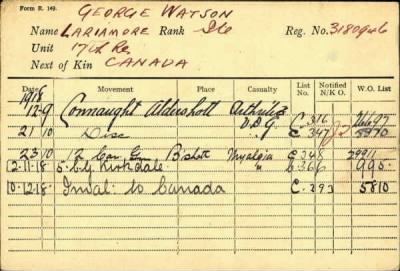 Form R. 149.
GEORGE WATSON
Name LARIAMORE Rank Pte Reg. No. 3180946
Unit 17th Re
Next of Kin CANADA
Date Movement Place Casualty List No. Notified N/K O. W.O. List
1918
12-9 Connaught Aldershott Arthritis C.316
V.D.G.
21/10 Disc C 347 5970
23/10 12 Can Gen B'shott Myalgia C 348 29911
12-11-18 5. Kirkdale " 366 995
10-12-18 Inval: to Canada C. 393 5810